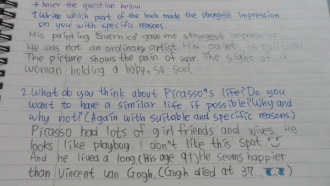 * Answer the question below
1. Write which part of the book made the strongest impression
on you with specific reasons.
His painting Guernica gave me strongest impression
He was not an ordinary artist. His paint is
The picture shows the pain of war. The sight of a
woman holding a baby, so sad
2. What do you think about Picasso's life? Do you
want to have a similar life if possible? Why and
why not? (Again with suitable and specific reasons)
Picasso had lots of girl friends and wives. He
looks like playboy. I don't like this spot.
And he lived a long (His age 91) He seems happier
than Vincent van Gogh. (Gogh died at 37...